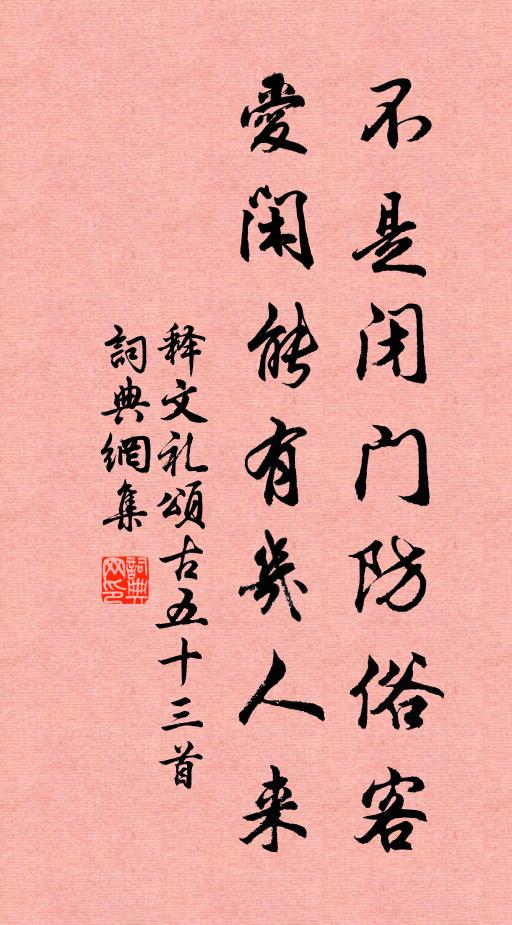 不是闭门防俗客
爱闲能有几人来
释文礼颂古五十三首
词典網集
詞典网印